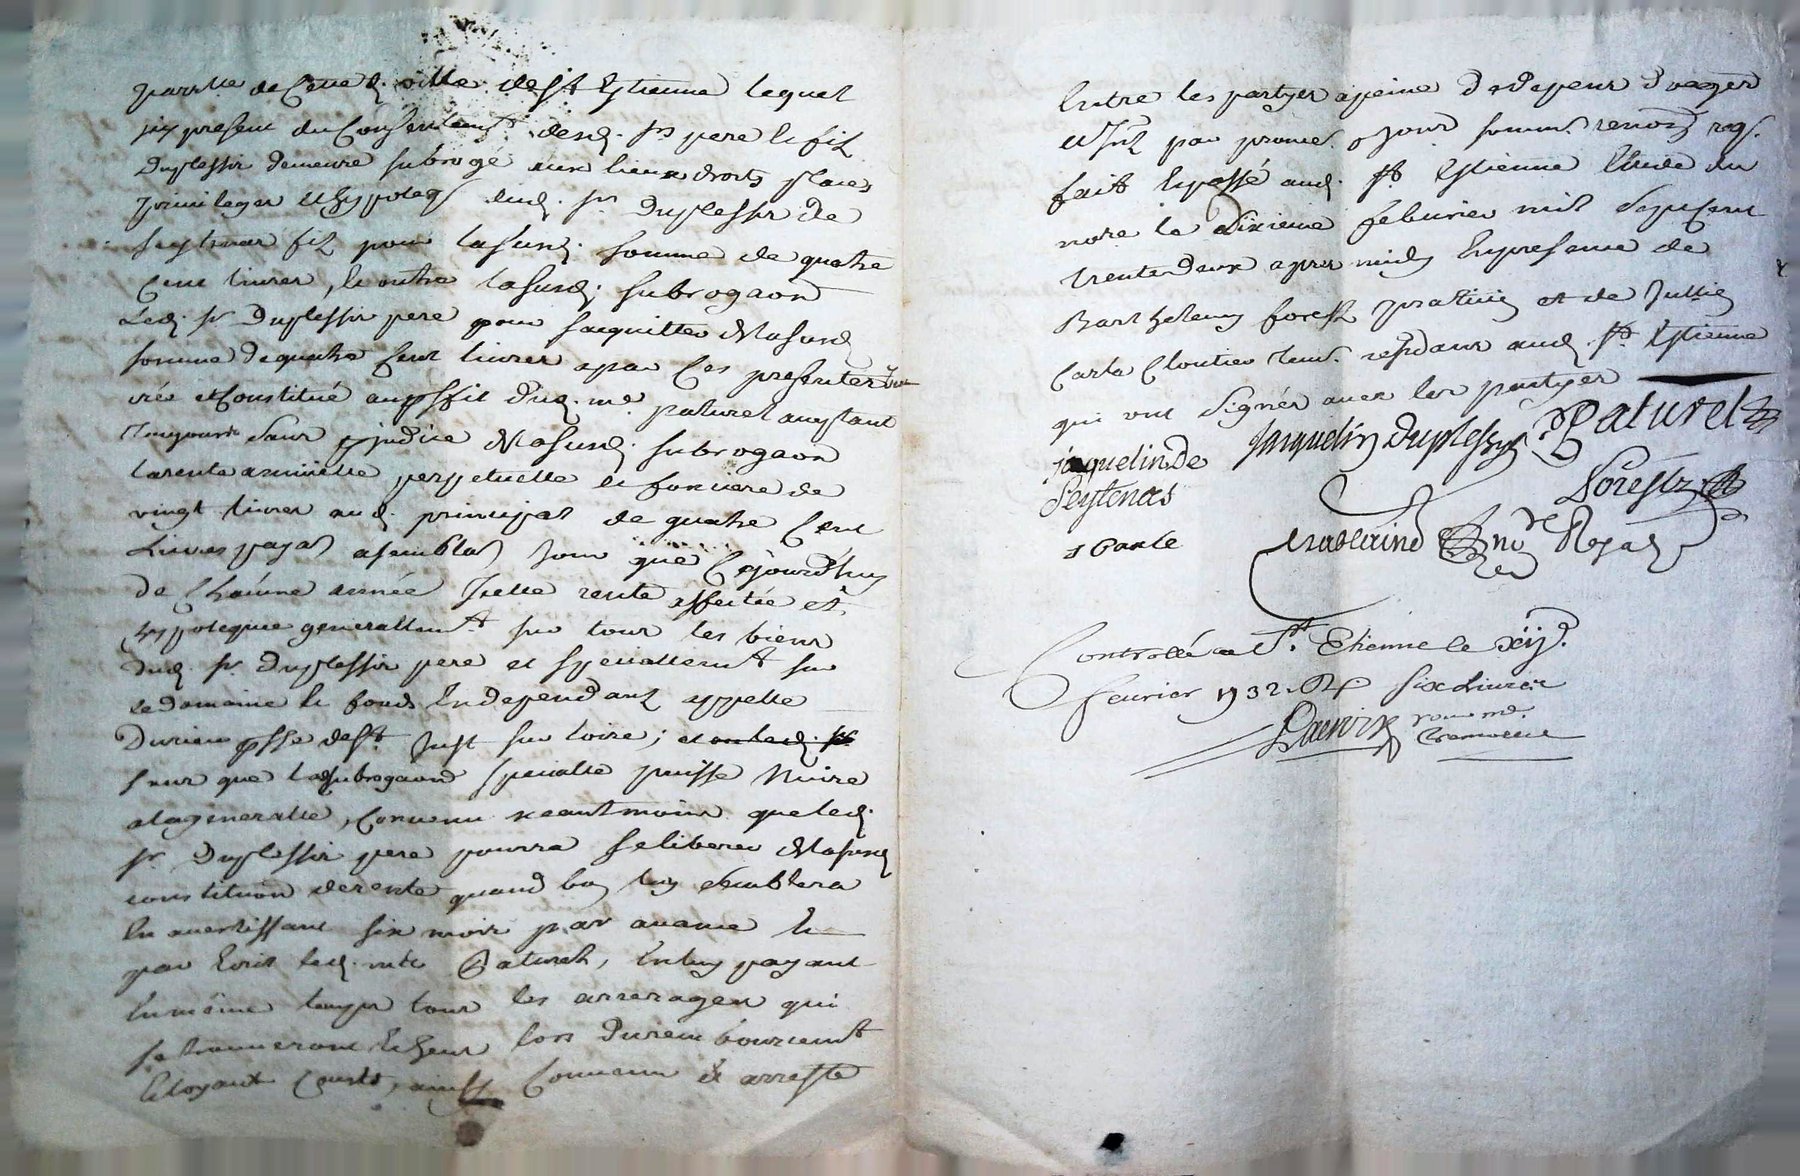 parelle de Cette d. ville de St Estienne lequel
icy present du Consentement desd. srs pere & fil
Duplessir demeure subrogé aux lieux droits places
privileges & hypoteq dud. sr Duplessir de
Seytenas fil pour lasusd. somme de quatre
Cent livres, & outre lasusd. subrogaon
Led. sr Duplessir pere pour sacquitter de lasusd
somme de quatre Cent livres a par Ces presentes
créé et Constitué au pffit dud. me paturel acceptant
Toujours sans pjudice de lasusd. subrogaon
la rente annuelle perpetuelle & fonciere de
vingt livres aud. principal de quatre Cent
Livres payab a semblab jour que Cejourd'huy
de Chacune année Icelle rente affectée et
hypotequée generallemt sur tous les biens
dud. sr Duplessir pere et speciallemt sur
le domaine & fonds Independant appelle
Durieu psse de St Just sur loire; et outre led. sr
sans que la subrogaon specialle puisse Nuire
ala generalle, Convenu neantmoins que led.
sr Duplessir pere pourra se liberer de lasusd
constitution de rente quand bon luy semblera
En avertissant six mois par avance &
par Ecrit led. me Paturel, & luy payant
En même temps tous les arrerages qui
se trouveront Echeus lors du remboursemt
& loyaux Cousts, ainssy Convenu & arresté
Entre les partyes apeine de depens d'oages
et Int par promes. & jour. soum. renon. reg.
fait & passé aud. St Estienne Etude du
nore le dixieme feburier mil sept Cent
trente deux apres midy En presence de
Barthelemy forest praticien et de Jullien
Carle Cloutier tem. residans aud. St Estienne
qui ont signés avec les partyes
jaquelin de Jaquelin Duplessys Paturel
Seytenas Forest
J Carle Royal
Controllé a St. Etienne le xij.
fevrier 1732. R. six Livres